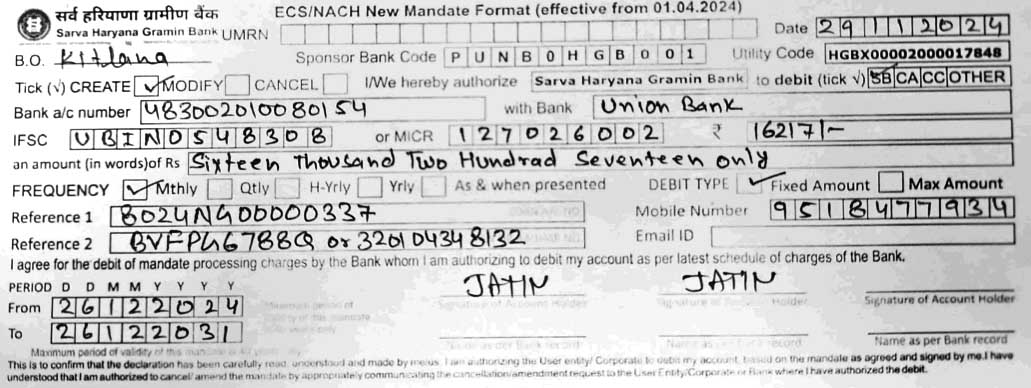 सर्व हरियाणा ग्रामीण बैंक ECS/NACH New Mandate Format (effective from 01.04.2024)
Sarva Haryana Gramin Bank UMRN Date 29112024
B.O. Kitlana Sponsor Bank Code PUNB0HGB001 Utility Code HGBX00002000017848
Tick (√) CREATE ✓ MODIFY CANCEL I/We hereby authorize Sarva Haryana Gramin Bank to debit (tick √) SB CA CC OTHER
Bank a/c number 483002010080154 with Bank Union Bank
IFSC UBIN0548308 or MICR 127026002 ₹ 16217/-
an amount (in words)of Rs Sixteen Thousand Two Hundrad Seventeen only
FREQUENCY ✓ Mthly Qtly H-Yrly Yrly As & when presented DEBIT TYPE ✓ Fixed Amount Max Amount
Reference 1 B024NG00000337 Mobile Number 9518477934
Reference 2 BVFPG6788Q or 320104348132 Email ID
I agree for the debit of mandate processing charges by the Bank whom I am authorizing to debit my account as per latest schedule of charges of the Bank.
PERIOD D D M M Y Y Y Y JATIN JATIN
From 26122024 Signature of Account Holder Signature of Account Holder Signature of Account Holder
To 26122031 Name as per Bank record Name as per Bank record Name as per Bank record
Maximum period of validity of this mandate is 40 years only
This is to confirm that the declaration has been carefully read, understood and made by me/us. I am authorizing the User entity/ Corporate to debit my account, based on the mandate as agreed and signed by me. I have
understood that I am authorized to cancel/ amend the mandate by appropriately communicating the cancellation/amendment request to the User Entity/Corporate or Bank where I have authorized the debit.